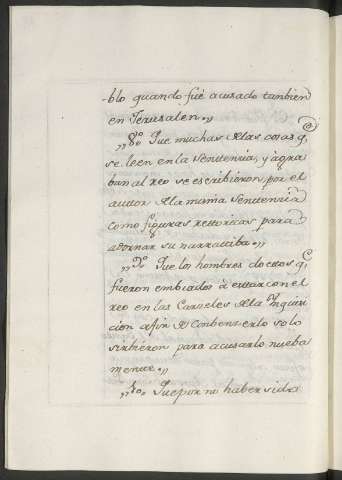 blo quando fué acusado tambien
en Jerusalen.,,
,,8º Que muchas de las cosas q.
se leen en la Sentencia, y agra
ban al reo se escribieron por el
autor de la misma Sentencia
como figuras rettoricas para
adornar su narrattiba.,,
,,9º Que los hombres doctos q.
fueron embiados à estar con el
reo en las Carceles de la Inquisi
cion afin de conbenzerlo solo
sirbieron para acusarlo nueba
mente.,,
,,10. Que por no haber sido